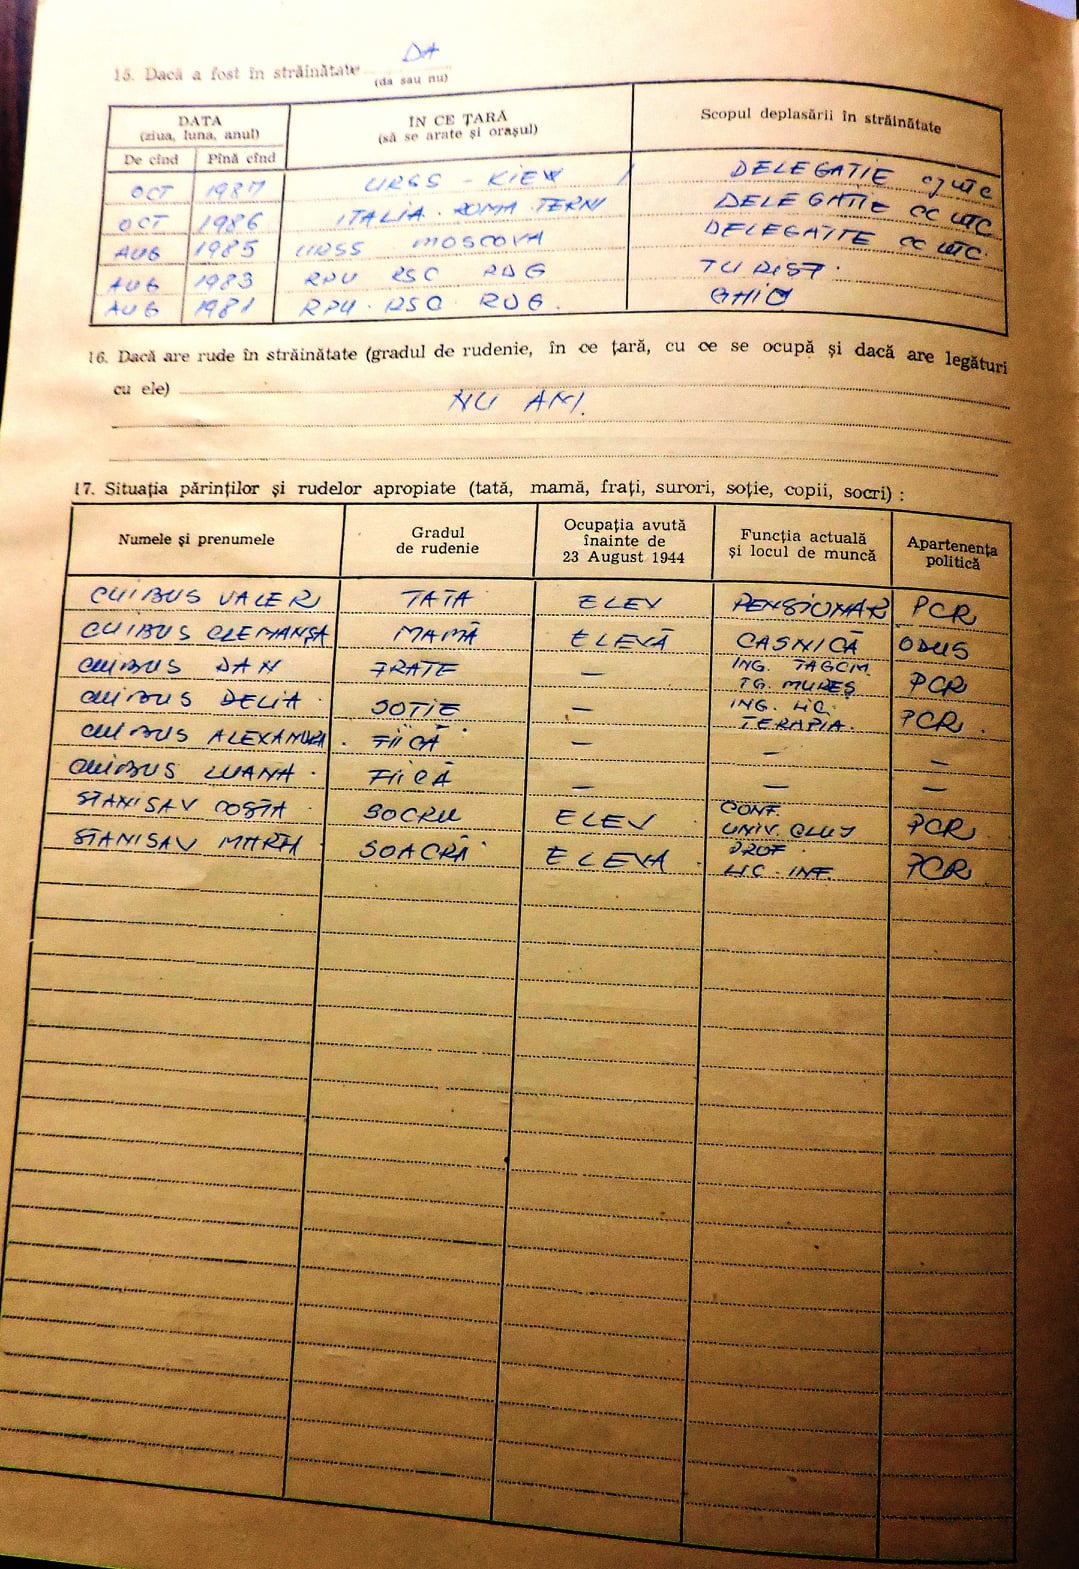 15. Dacă a fost în străinătate DA
(da sau nu)
DATA
(ziua, luna, anul)
IN CE ȚARĂ
(să se arate și orașul)
Scopul deplasării în străinătate
De cînd Pînă cînd
OCT 1987 URSS - KIEW DELEGATIE CJ UTC
OCT 1986 ITALIA. ROMA TERNI DELEGATIE CC UTC
AUG 1985 URSS MOSCOVA DELEGATIE CC UTC.
AUG 1983 RPU RSC RDG TURIST.
AUG 1981 RPU. RSC RDG. GHID
16. Dacă are rude în străinătate (gradul de rudenie, în ce țară, cu ce se ocupă și dacă are legături
cu ele)
NU AM.
17. Situația părinților și rudelor apropiate (tată, mamă, frați, surori, soție, copii, socri) :
Numele și prenumele
Gradul
de rudenie
Ocupația avută
înainte de
23 August 1944
Funcția actuală
și locul de muncă
Apartenența
politică
CUIBUS VALER TATA ELEV PENSIONAR PCR
CUIBUS CLEMANSA MAMĂ ELEVĂ CASNICĂ ODUS
CUIBUS DAN FRATE — ING. TAGCM
TG. MUREȘ PCR
CUIBUS DELIA SOTIE — ING. LIC.
TERAPIA. PCR.
CUIBUS ALEXANDRA. FIICĂ — — —
CUIBUS LUANA. FIICĂ — — —
STANISAV COSTA SOCRU ELEV CONF.
UNIV. CLUJ PCR
STANISAV MARIA SOACRĂ ELEVĂ PROF.
LIC. INF. PCR